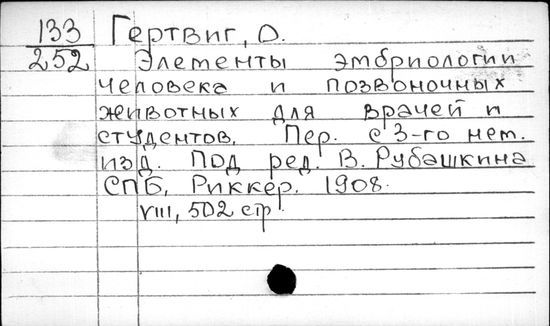 133 Гертвиг, О.
252 Элементы эмбриологии
человека и позвоночных
животных для врачей и
студентов. Пер. с 3-го нем.
изд. Под ред. В. Рубашкина
СПБ, Риккер. 1908.
VIII, 502 стр.